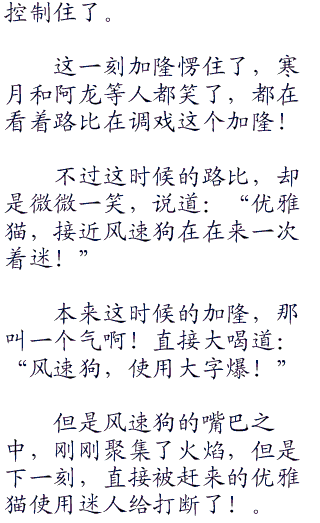 控制住了。
这一刻加隆愣住了，寒
月和阿龙等人都笑了，都在
看着路比在调戏这个加隆！
不过这时候的路比，却
是微微一笑，说道：“优雅
猫，接近风速狗在在来一次
着迷！”
本来这时候的加隆，那
叫一个气啊！直接大喝道：
“风速狗，使用大字爆！”
但是风速狗的嘴巴之
中，刚刚聚集了火焰，但是
下一刻，直接被赶来的优雅
猫使用迷人给打断了！。